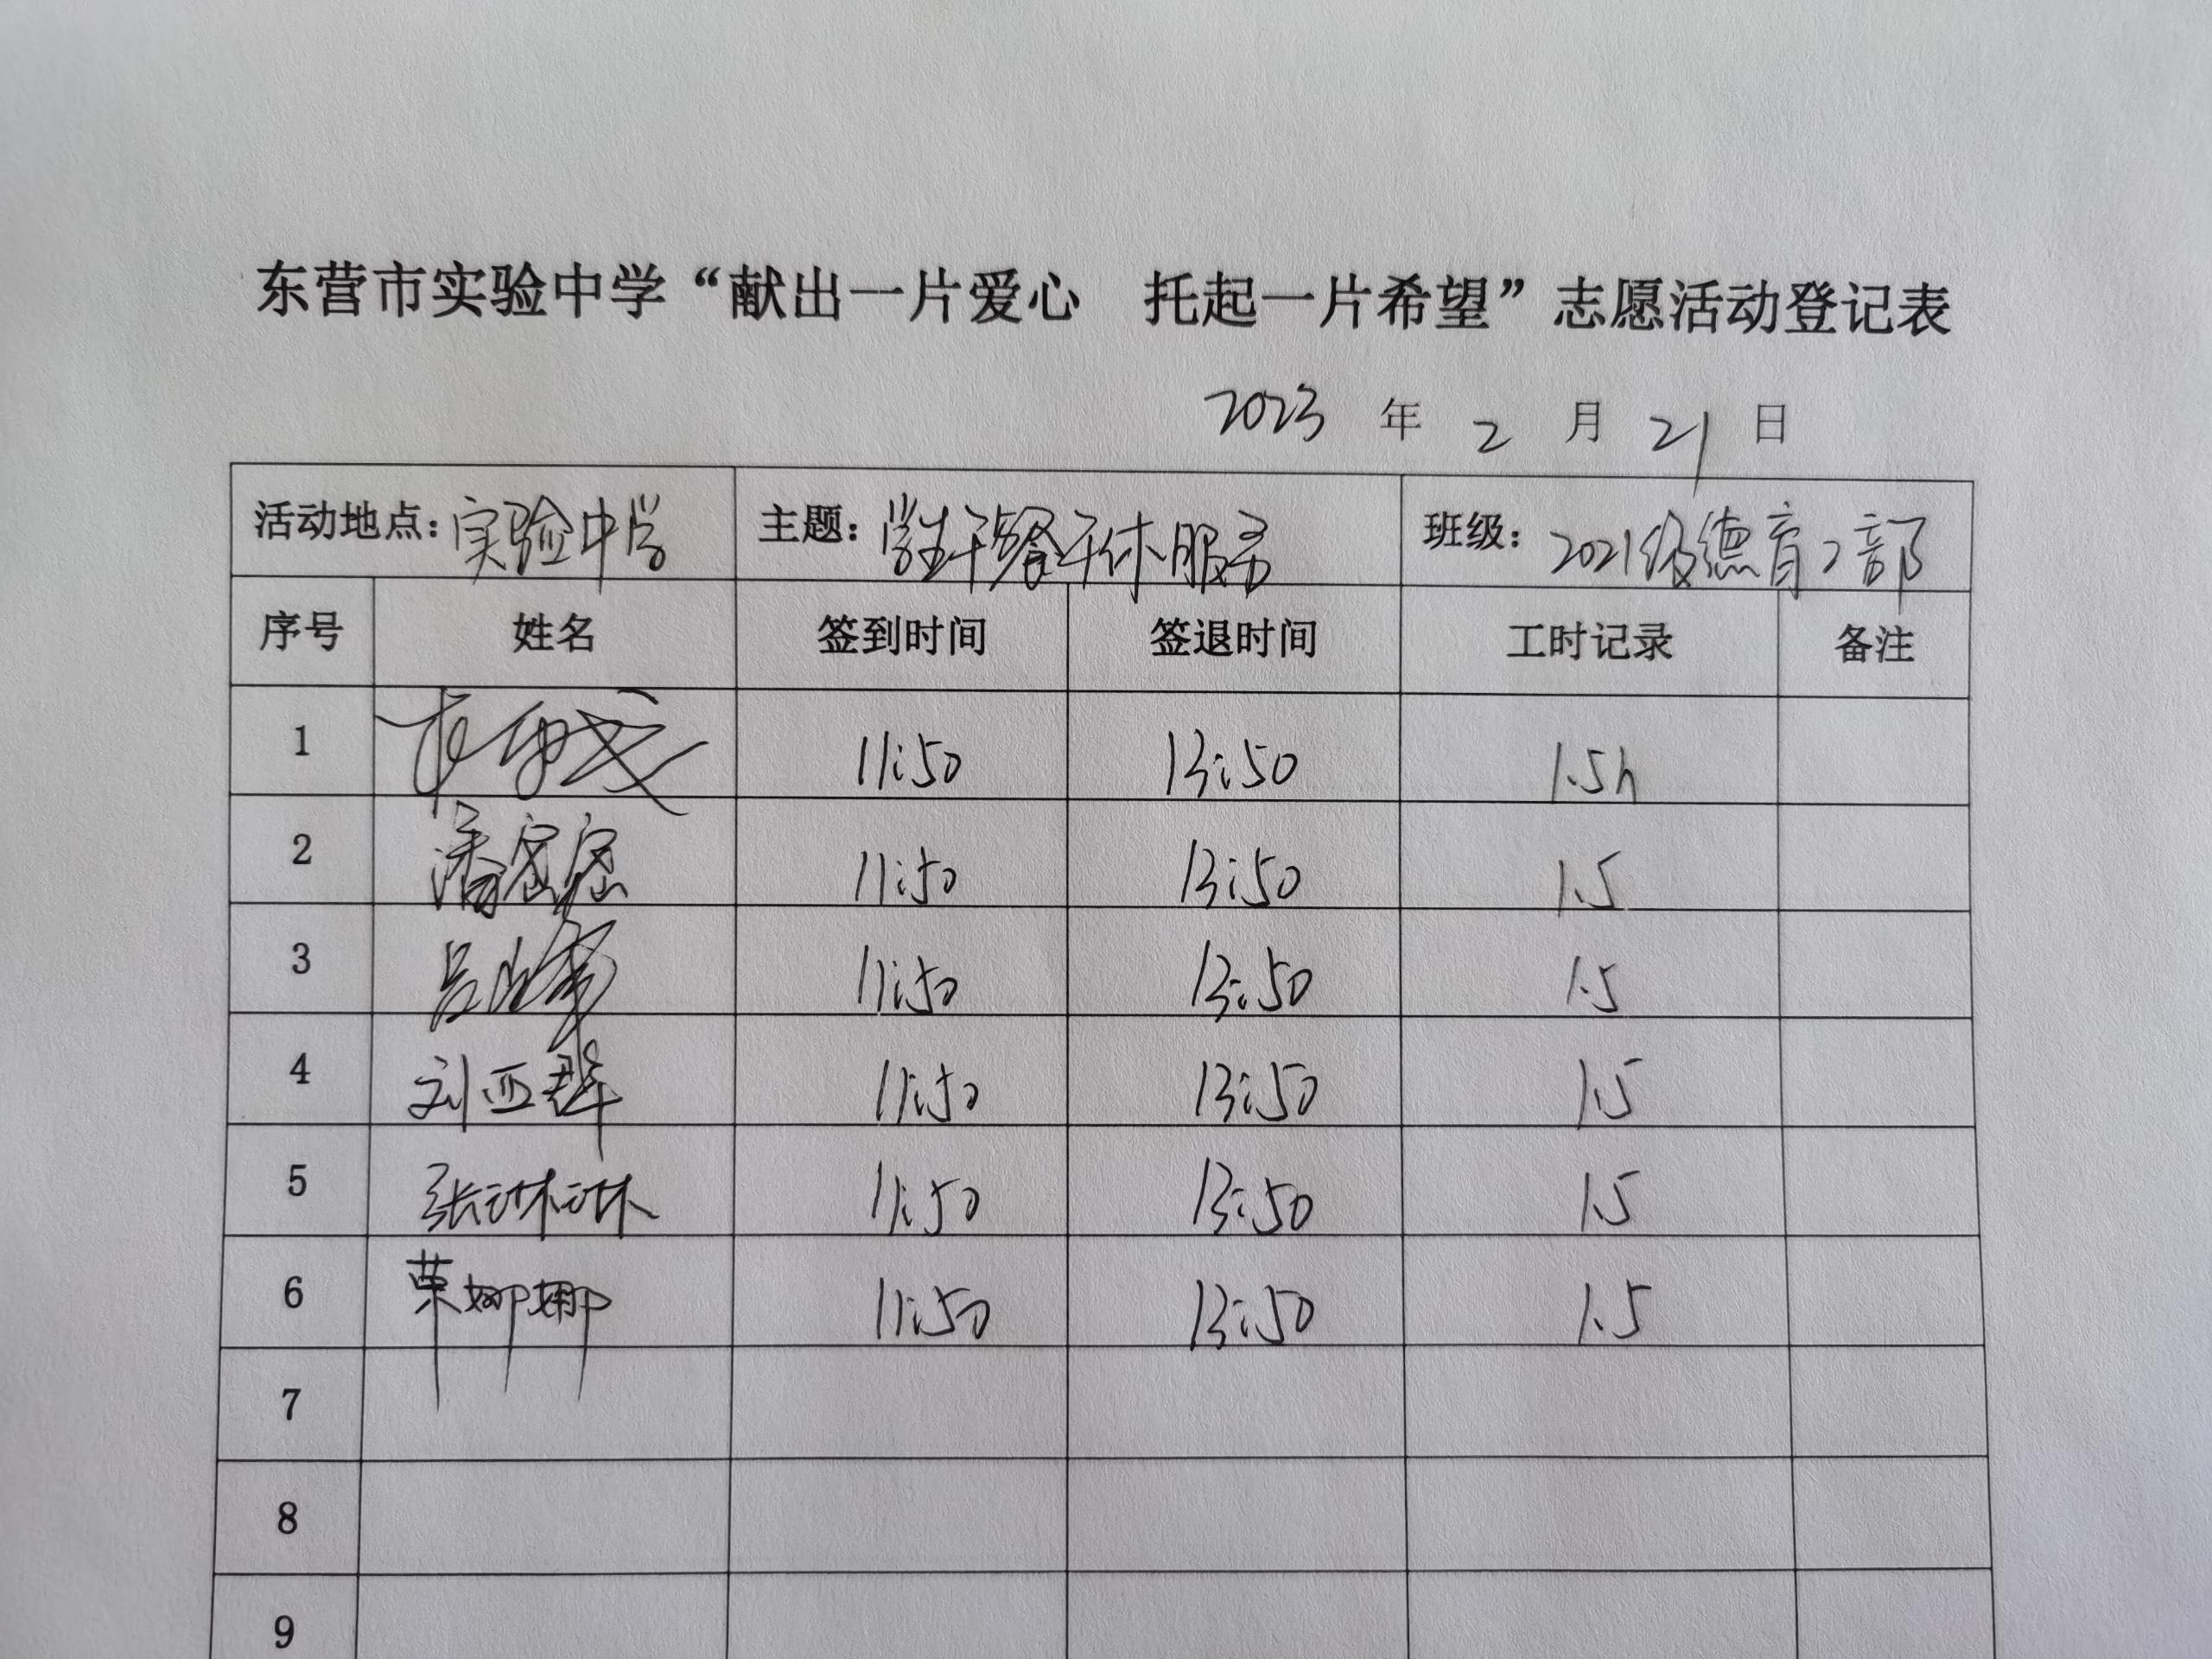 东营市实验中学“献出一片爱心 托起一片希望”志愿活动登记表
2023 年 2 月 21 日
活动地点：实验中学 主题：学生午餐午休服务 班级：2021级德育2部
序号 姓名 签到时间 签退时间 工时记录 备注
1 11:50 13:50 1.5h
2 潘密密 11:50 13:50 1.5
3 11:50 13:50 1.5
4 刘亚群 11:50 13:50 1.5
5 张琳琳 11:50 13:50 1.5
6 荣娜娜 11:50 13:50 1.5
7
8
9